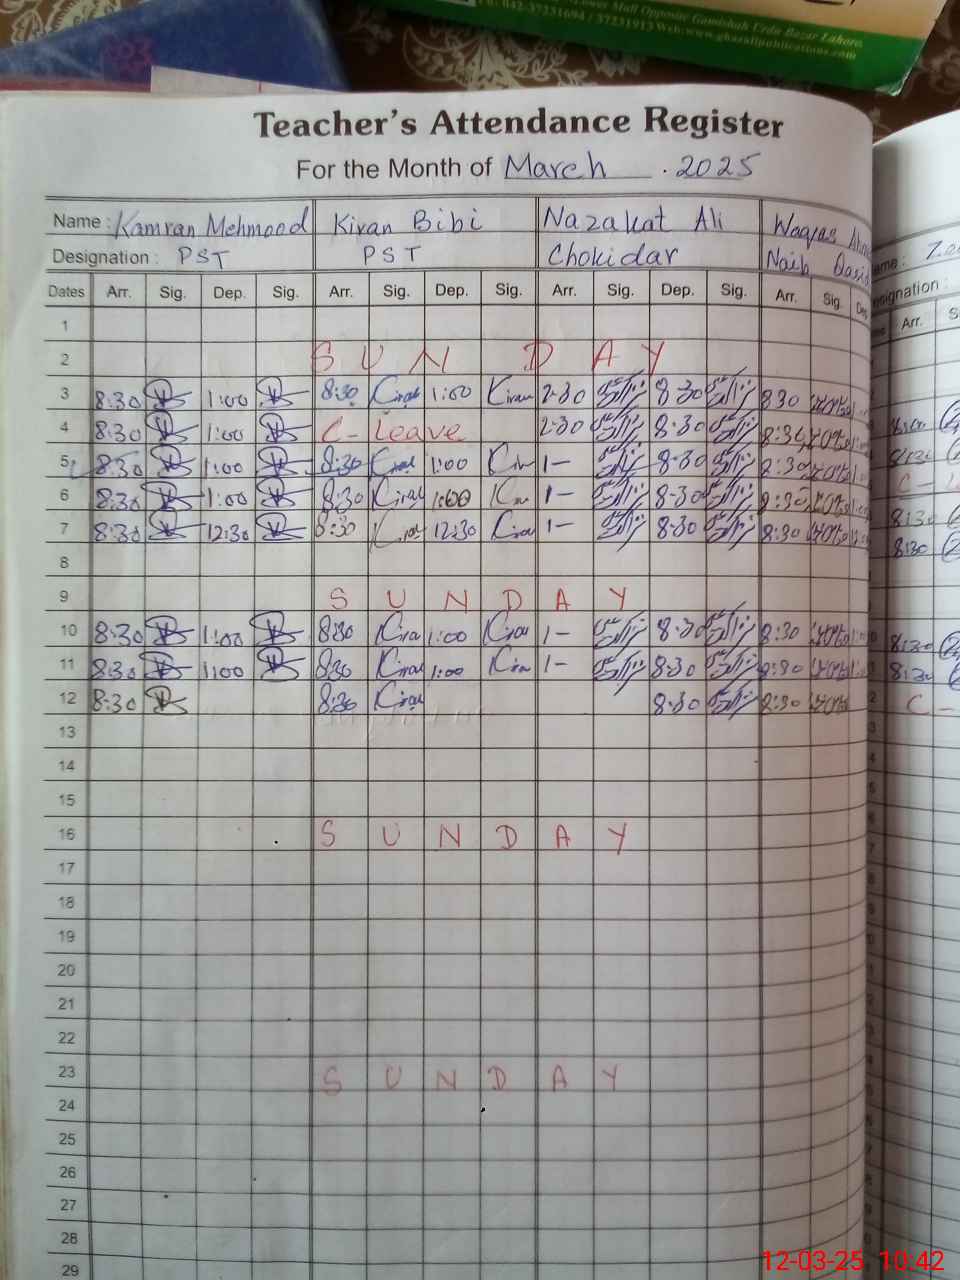 Ph: 042-37231694 / 37231913 Web:www.gharalipublications.com
Lower Mall Opposite Gamishah Urdu Bazar Lahore.
Teacher's Attendance Register
For the Month of March . 2025
Name : Kamran Mehmood Kiran Bibi Nazakat Ali Waqas
Designation : PST PST Chokidar Naib Qasid
Dates Arr. Sig. Dep. Sig. Arr. Sig. Dep. Sig. Arr. Sig. Dep. Sig. Arr. Sig. Dep
1
2 S U N D A Y
3 8:30 1:00 8:30 Kiran 1:00 Kiran 2-30 8:30 8 30
4 8:30 1:00 C- Leave 2-30 8:30 8:30
5 8:30 1:00 8:30 Kiran 1:00 Kiran 1- 8:30 8:30
6 8:30 1:00 8:30 Kiran 1:00 Kiran 1- 8:30 8:30
7 8:30 12:30 8:30 Kiran 12:30 Kiran 1- 8:30 8:30
8
9 S U N D A Y
10 8:30 1:00 8:30 Kiran 1:00 Kiran 1- 8:30 8:30
11 8:30 1:00 8:30 Kiran 1:00 Kiran 1- 8:30 8:30
12 8:30 8:30 Kiran 8:30 8:30
13
14
15
16 S U N D A Y
17
18
19
20
21
22
23 S U N D A Y
24
25
26
27
28
29
ame :
esignation :
Arr. S
8:30
8:30
C -
8:30
8:30
8:30
8:30
C -
12-03-25 10:42